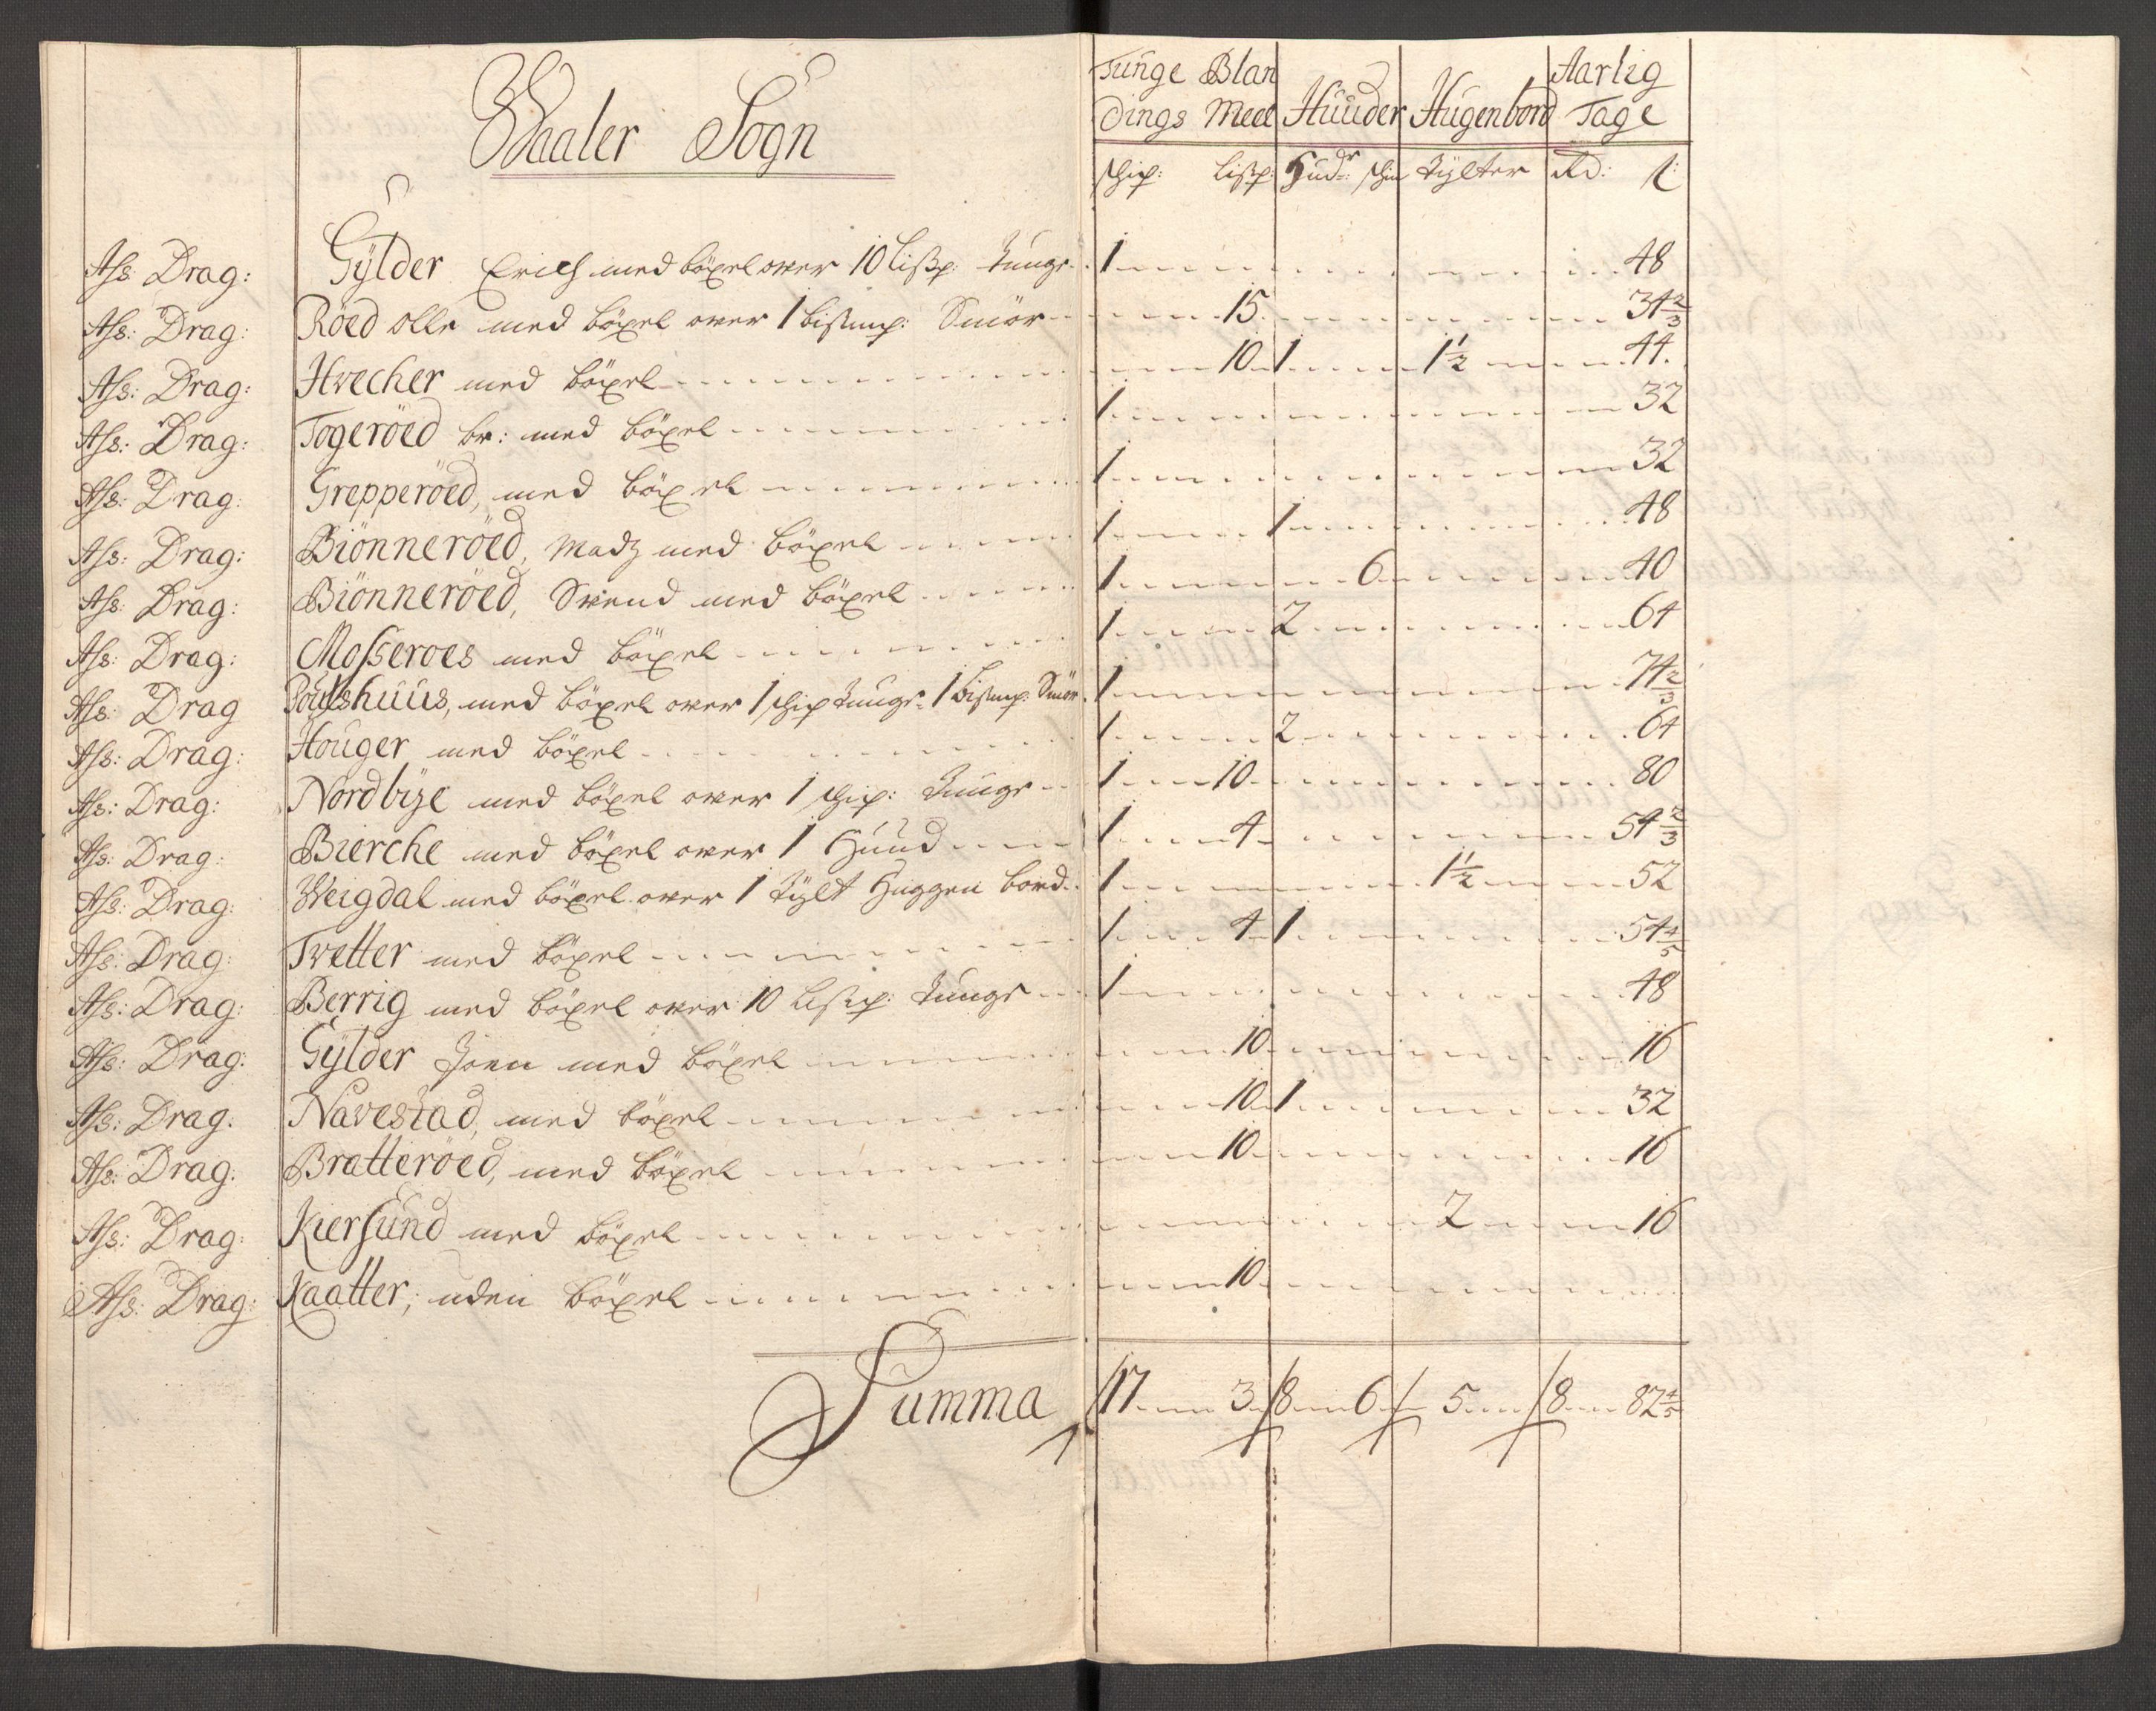 Waaler Sogn
Tunge Blan Aarlig
dings Meel Huuder Hugenbord Tage
schip: lißp: Hudr: schin Tÿlter Rd: ß:
Afs: Drag: Gÿlder Erich med böxel over 10 lißp: tunge 1 48
Afs: Drag: Röed Olle med böxel over 1 bismp: Smör 15 34 2/3
Afs: Drag: Hvecher med böxel 10 1 1½ 44.
Afs: Drag: Togeröed br: med böxel 1 32
Afs: Drag: Grepperöed, med böxel 1 32
Afs: Drag: Biönneröed, Madz med böxel 1 1 48
Afs: Drag: Biönneröed, Svend med böxel 1 6 40
Afs: Drag: Mosseroes med böxel 1 2 64
Afs: Drag huus, med böxel over 1 schip tunge 1 bismp: Smör 1 74 2/3
Afs: Drag: Houger med böxel 1 2 64
Afs: Drag: Nordbÿe med böxel over 1 schip: tunge 1 10 80
Afs: Drag: Bierche med böxel over 1 Huud 1 4 54 2/3
Afs: Drag: Weigdal med böxel over 1 tÿlt Huggen bord 1 1½ 52
Afs: Drag: Tvetter med böxel 1 4 1 54 4/5
Afs: Drag: Berrig med böxel over 10 lißp: tunge 1 48
Afs: Drag: Gÿlder Joen med böxel 10 16
Afs: Drag. Navestad, med böxel 10 1 32
Afs: Drag: Bratteröed, med böxel 10 16
Afs: Drag: Kiersund med böxel 2 16
Afs: Drag: Kaatter, uden böxel 10
Summa 17 3 8 6 5 8 82 4/5